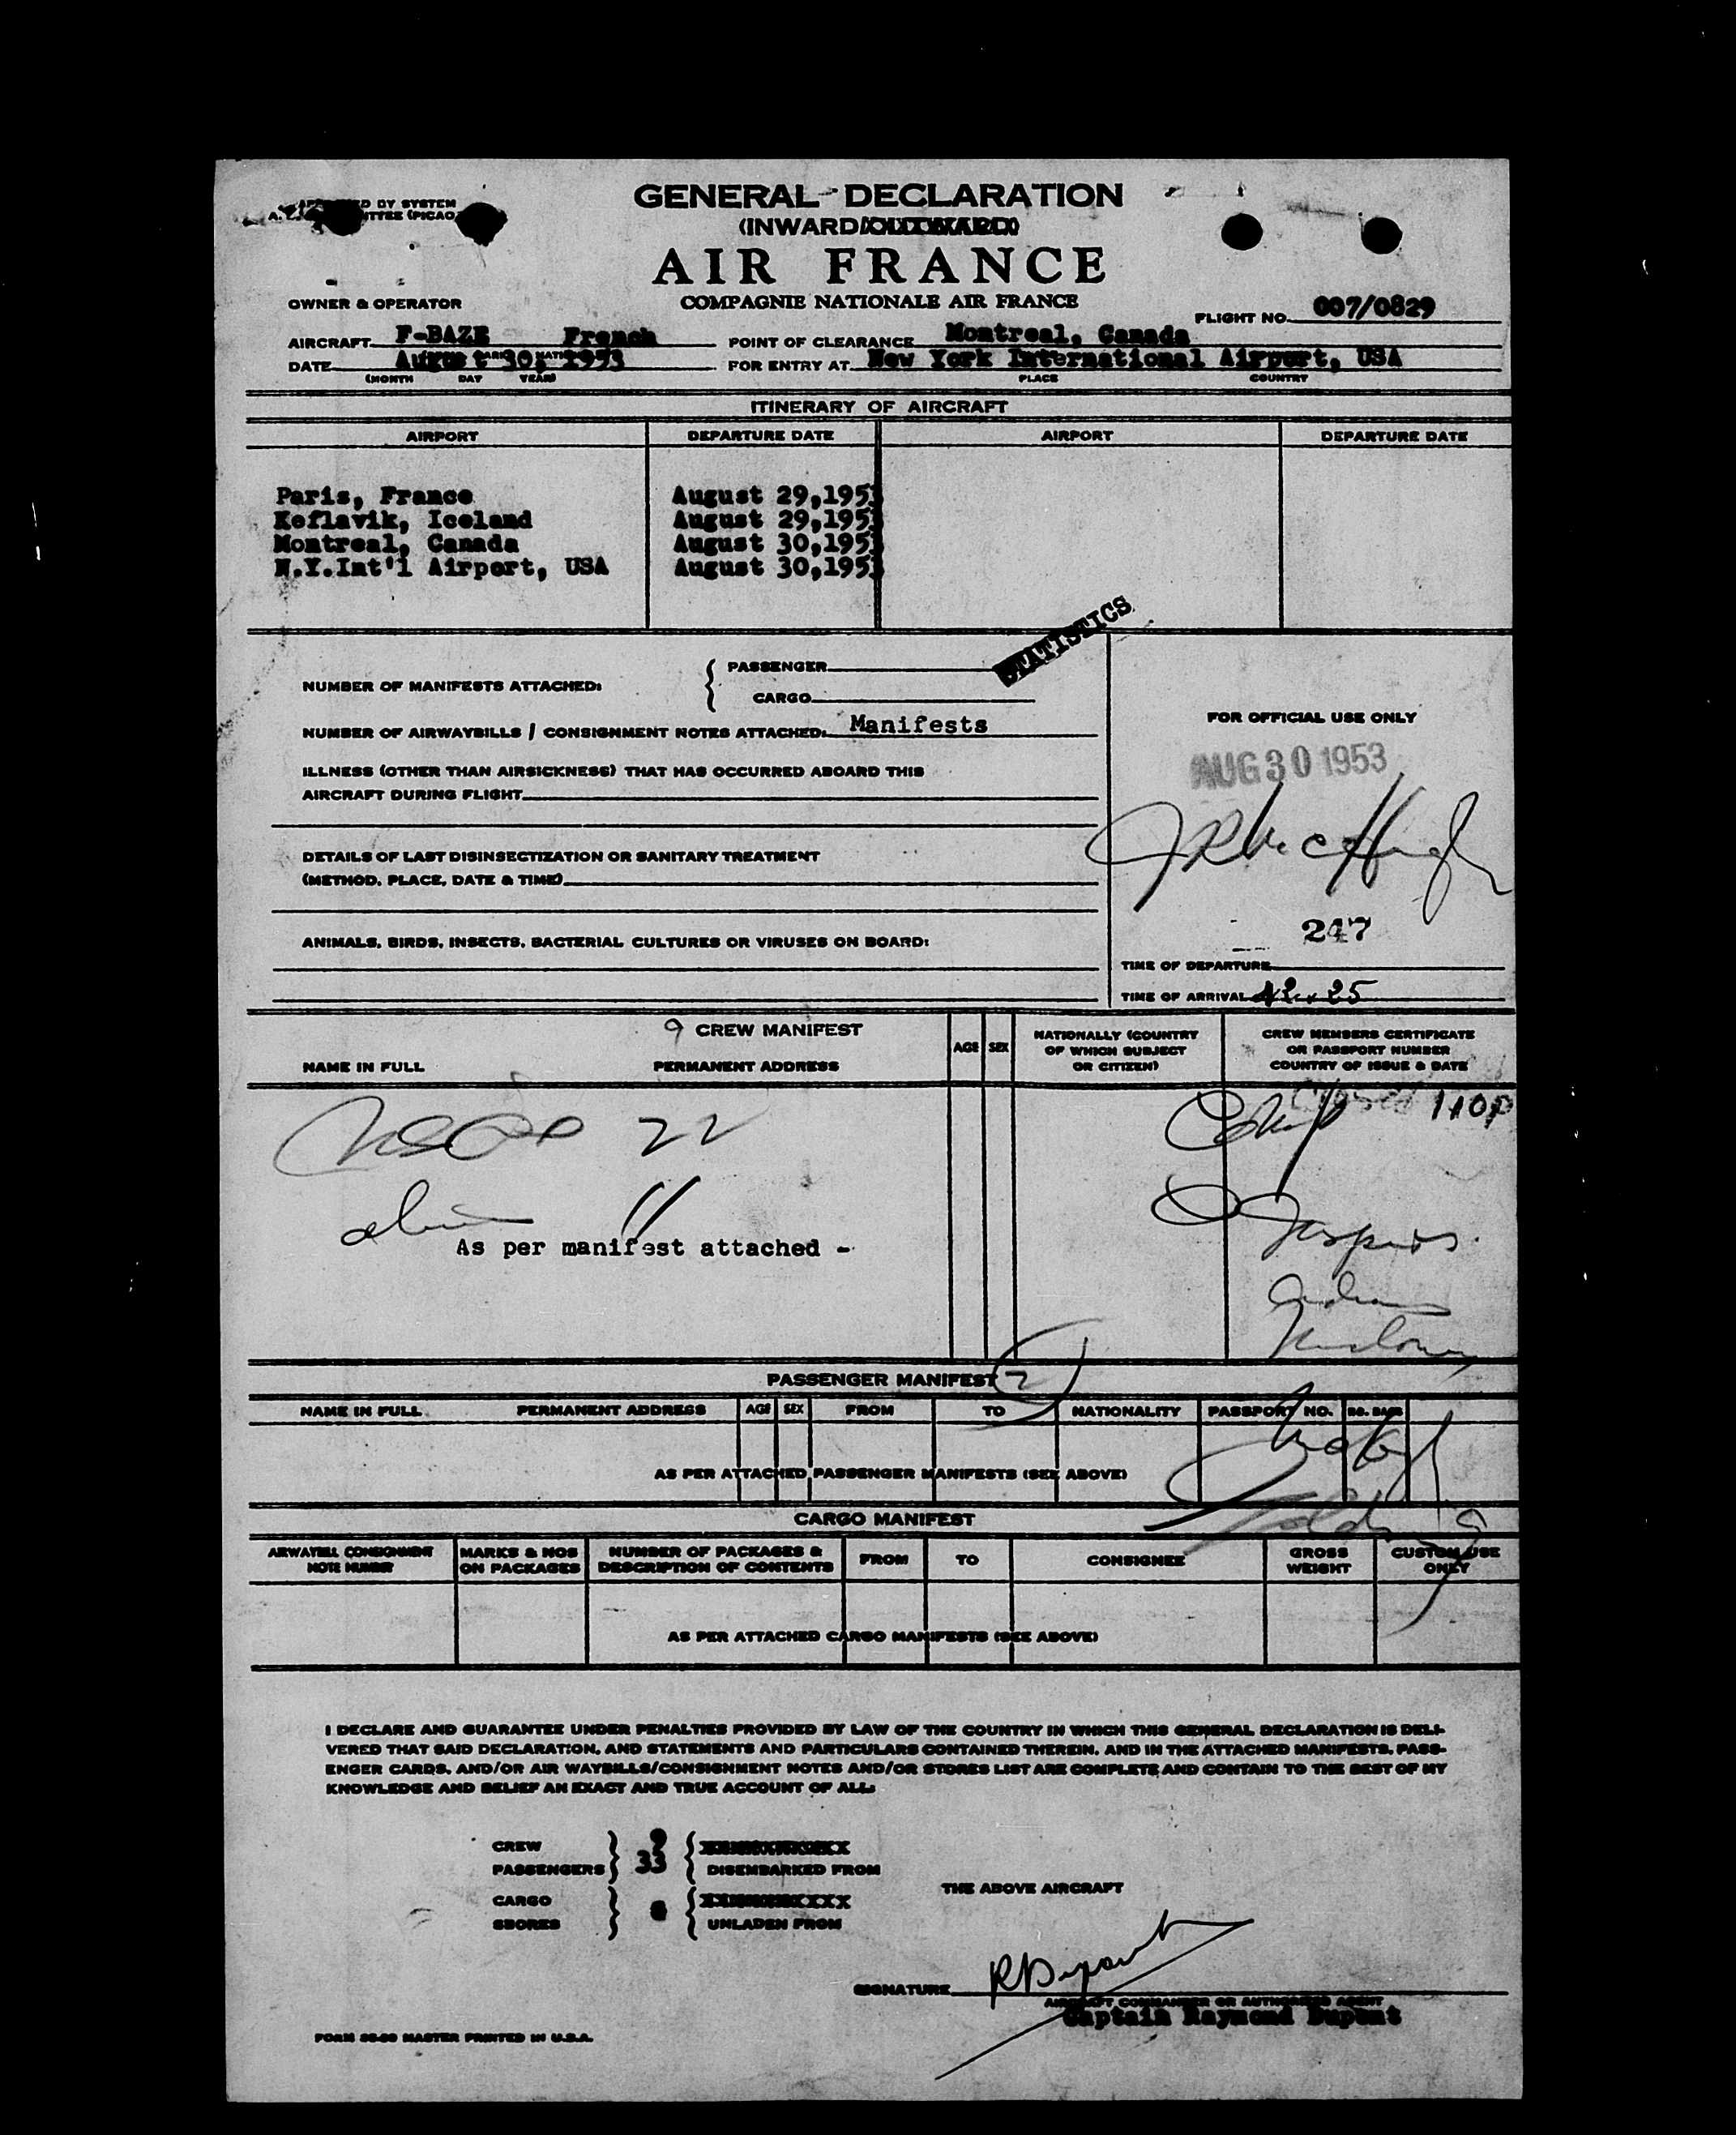 D BY SYSTEM
GENERAL DECLARATION
(INWARD
AIR FRANCE
COMPAGNIE NATIONALE AIR FRANCE
OWNER & OPERATOR
FLIGHT NO. 007/0829
AIRCRAFT F-BAZE French
POINT OF CLEARANCE Montreal, Canada
DATE August 30, 1953
FOR ENTRY AT New York International Airport, USA
(MONTH DAY YEAR)
PLACE COUNTRY
ITINERARY OF AIRCRAFT
AIRPORT DEPARTURE DATE AIRPORT DEPARTURE DATE
Paris, France August 29,1953
Keflavik, Iceland August 29,1953
Montreal, Canada August 30,1953
N.Y.Int'l Airport, USA August 30,1953
STATISTICS
NUMBER OF MANIFESTS ATTACHED:
PASSENGER
CARGO
NUMBER OF AIRWAYBILLS / CONSIGNMENT NOTES ATTACHED: Manifests
ILLNESS (OTHER THAN AIRSICKNESS) THAT HAS OCCURRED ABOARD THIS
AIRCRAFT DURING FLIGHT
DETAILS OF LAST DISINSECTIZATION OR SANITARY TREATMENT
(METHOD, PLACE, DATE & TIME)
ANIMALS, BIRDS, INSECTS, BACTERIAL CULTURES OR VIRUSES ON BOARD:
FOR OFFICIAL USE ONLY
AUG 30 1953
247
TIME OF DEPARTURE
TIME OF ARRIVAL
9 CREW MANIFEST
NAME IN FULL PERMANENT ADDRESS
AGE SEX
NATIONALLY (COUNTRY
OF WHICH SUBJECT
OR CITIZEN)
CREW MEMBERS CERTIFICATE
OR PASSPORT NUMBER
COUNTRY OF ISSUE & DATE
110P
22
11
As per manifest attached -
PASSENGER MANIFEST
NAME IN FULL PERMANENT ADDRESS AGE SEX FROM TO NATIONALITY PASSPORT NO.
AS PER ATTACHED PASSENGER MANIFESTS (SEE ABOVE)
CARGO MANIFEST
AIRWAYBILL CONSIGNMENT
NOTE NUMBER
MARKS & NOS
ON PACKAGES
NUMBER OF PACKAGES &
DESCRIPTION OF CONTENTS
FROM TO CONSIGNEE
GROSS
WEIGHT
CUSTOM USE
ONLY
AS PER ATTACHED CARGO MANIFESTS (SEE ABOVE)
I DECLARE AND GUARANTEE UNDER PENALTIES PROVIDED BY LAW OF THE COUNTRY IN WHICH THIS GENERAL DECLARATION IS DELI-
VERED THAT SAID DECLARATION, AND STATEMENTS AND PARTICULARS CONTAINED THEREIN, AND IN THE ATTACHED MANIFESTS, PASS-
ENGER CARDS, AND/OR AIR WAYBILLS/CONSIGNMENT NOTES AND/OR STORES LIST ARE COMPLETE AND CONTAIN TO THE BEST OF MY
KNOWLEDGE AND BELIEF AN EXACT AND TRUE ACCOUNT OF ALL:
CREW 9
PASSENGERS 33 DISEMBARKED FROM
THE ABOVE AIRCRAFT
CARGO
SBORES UNLADEN FROM
SIGNATURE RDupont
AIRCRAFT COMMANDER OR AUTHORIZED AGENT
Captain Raymond Dupont
MASTER PRINTED IN U.S.A.